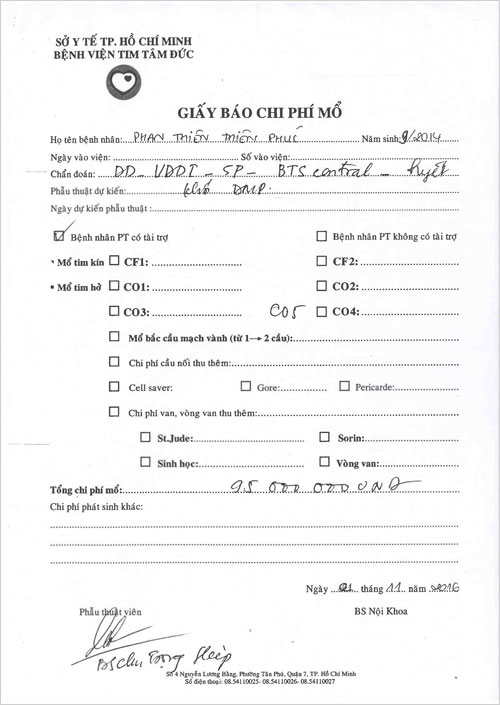 SỞ Y TẾ TP. HỒ CHÍ MINH
BỆNH VIỆN TIM TÂM ĐỨC
GIẤY BÁO CHI PHÍ MỔ
Họ tên bệnh nhân: PHAN THIÊN THIÊN PHÚC Năm sinh: 9/2014
Ngày vào viện: Số vào viện:
Chẩn đoán: DD - VDDI - SP - BTS central -
Phẫu thuật dự kiến:
Ngày dự kiến phẫu thuật :
☑ Bệnh nhân PT có tài trợ ☐ Bệnh nhân PT không có tài trợ
• Mổ tim kín ☐ CF1: ☐ CF2:
• Mổ tim hở ☐ CO1: ☐ CO2:
☐ CO3: CO5 ☐ CO4:
☐ Mổ bắc cầu mạch vành (từ 1→ 2 cầu):
☐ Chi phí cầu nối thu thêm:
☐ Cell saver: ☐ Gore: ☐ Pericarde:
☐ Chi phí van, vòng van thu thêm:
☐ St.Jude: ☐ Sorin:
☐ Sinh học: ☐ Vòng van:
Tổng chi phí mổ: 95 000 000 VNĐ
Chi phí phát sinh khác:
Ngày 01 tháng 11 năm 2016
Phẫu thuật viên BS Nội Khoa
BS Chu Trọng Hiệp
Số 4 Nguyễn Lương Bằng, Phường Tân Phú, Quận 7, TP. Hồ Chí Minh
Số điện thoại: 08.54110025- 08.54110026- 08.54110027